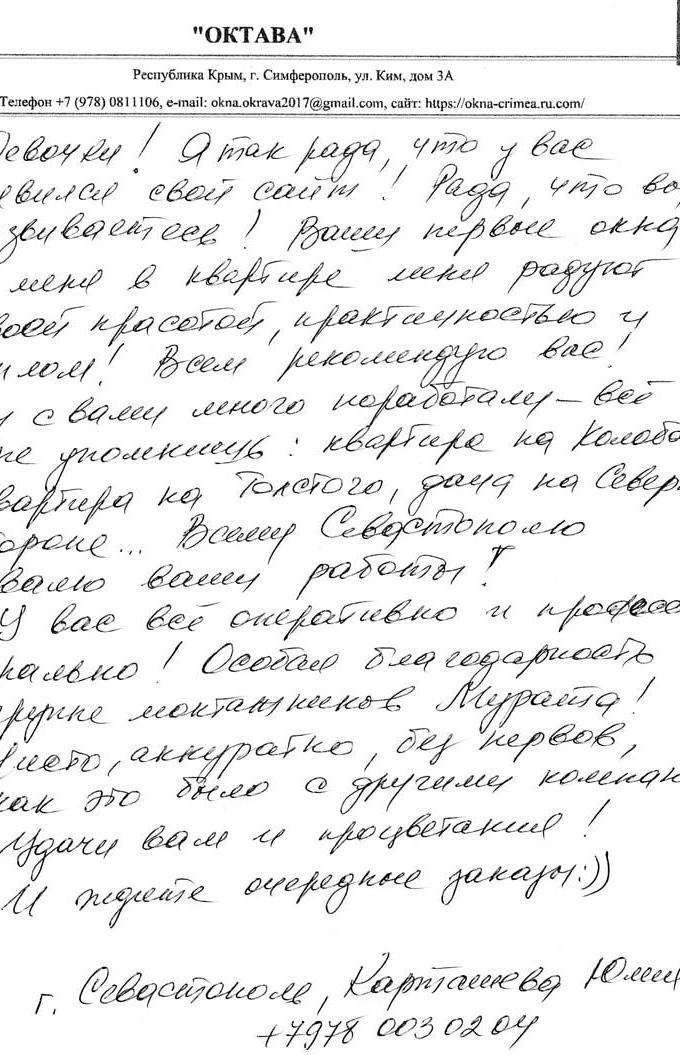 "ОКТАВА"
Республика Крым, г. Симферополь, ул. Ким, дом 3А
Телефон +7 (978) 0811106, e-mail: okna.okrava2017@gmail.com, сайт: https://okna-crimea.ru.com/
Девочки! Я так рада, что у вас
явился свой сайт! Рада, что вы
звиваетесь! Ваши первые окна
меня в квартире меня радуют
воей красотой, практичностью и
илом! Всем рекомендую вас!
ы с вами много поработали – всё
не упомнишь: квартира на Колоба
вартира на Толстого, дача на Север
ороне... Всему Севастополю
валю вашу работы!
У вас всё оперативно и професс
нально! Особая благодарность
группе монтажников Мурата!
Чисто, аккуратно, без нервов,
как это было с другими компан
Удачи вам и процветания!
И ждите очередные заказы:))
г. Севастополь, Карташева Юлия
+7978 003 02 04